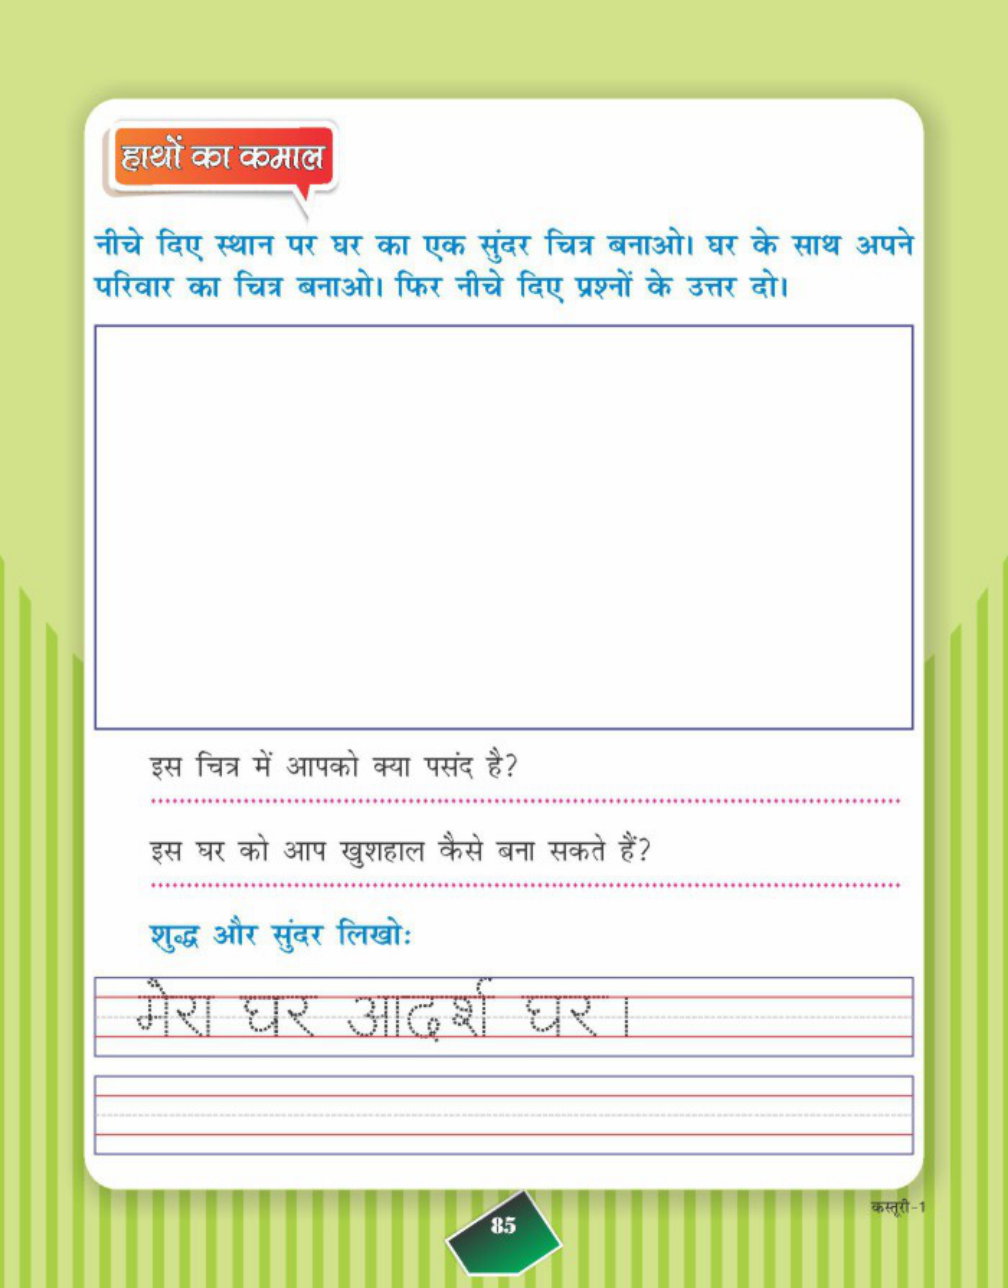 हाथों का कमाल
नीचे दिए स्थान पर घर का एक सुंदर चित्र बनाओ। घर के साथ अपने
परिवार का चित्र बनाओ। फिर नीचे दिए प्रश्नों के उत्तर दो।
इस चित्र में आपको क्या पसंद है?
इस घर को आप खुशहाल कैसे बना सकते हैं?
शुद्ध और सुंदर लिखो:
मेरा घर आदर्श घर।
85
कस्तूरी-1